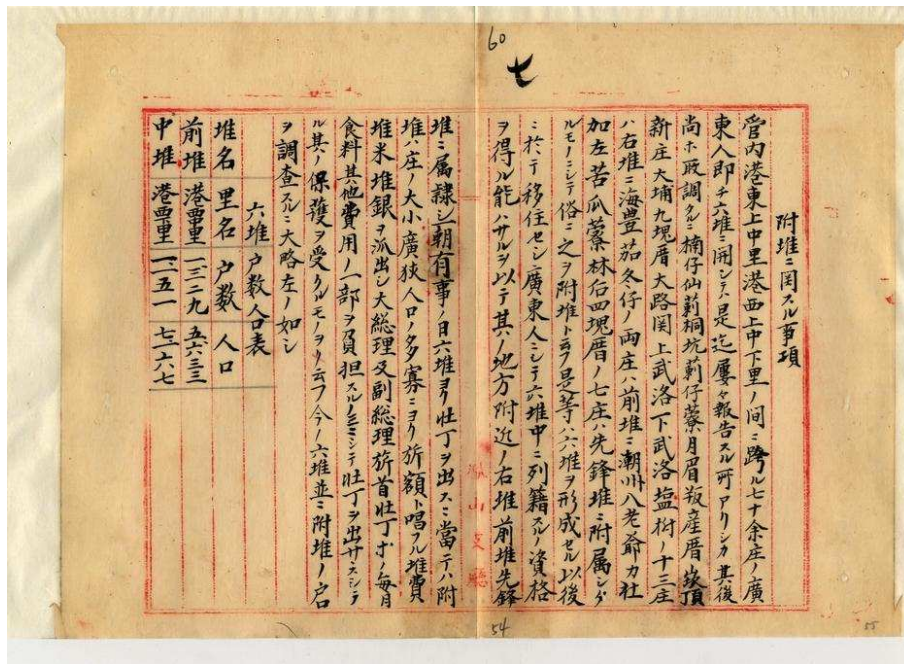 60
七
附堆ニ関スル事項
管内港東上中里港西上中下里ノ間ニ跨ル七十余庄ノ廣
東人即チ六堆ニ関シテハ是迄屢々報告スル所アリシカ其後
尚ホ取調タルニ楠仔仙莿桐坑莿仔藔月眉叛産厝崁頂
新庄大埔九塊厝大路関上武洛下武洛塩樹ノ十三庄
ハ右堆ニ海豊茄冬仔ノ両庄ハ前堆ニ潮州八老爺力社
加左苦瓜藔林后四塊厝ノ七庄ハ先鋒堆ニ附属シタ
ルモノニシテ俗ニ之ヲ附堆ト云フ是等ハ六堆ヲ形成セル以後
ニ於テ移住セシ廣東人ニシテ六堆中ニ列籍スルノ資格
ヲ得ル能ハサルヲ以テ其ノ地方附近ノ右堆前堆先鋒
堆ニ属隷シ朝有事ノ日六堆ヨリ壮丁ヲ出スニ當テハ附
堆ハ庄ノ大小廣狭人口ノ多寡ニヨリ旂額ト唱フル堆費
堆米堆銀ヲ派出シ大総理及副総理旂首壮丁等ノ毎月
食料其他費用ノ一部ヲ負担スルノミニシテ壮丁ヲ出サスシテ
ル其ノ保護ヲ受クルモノヨリ云フ今ノ六堆並ニ附堆ノ戸口
ヲ調査スルニ大略左ノ如シ
六堆戸数人口表
堆名 里名 戸数 人口
前堆 港西里 一、三二九 五六三三
中堆 港西里 一、二五一 七三六七
鳳山支廳
54
55